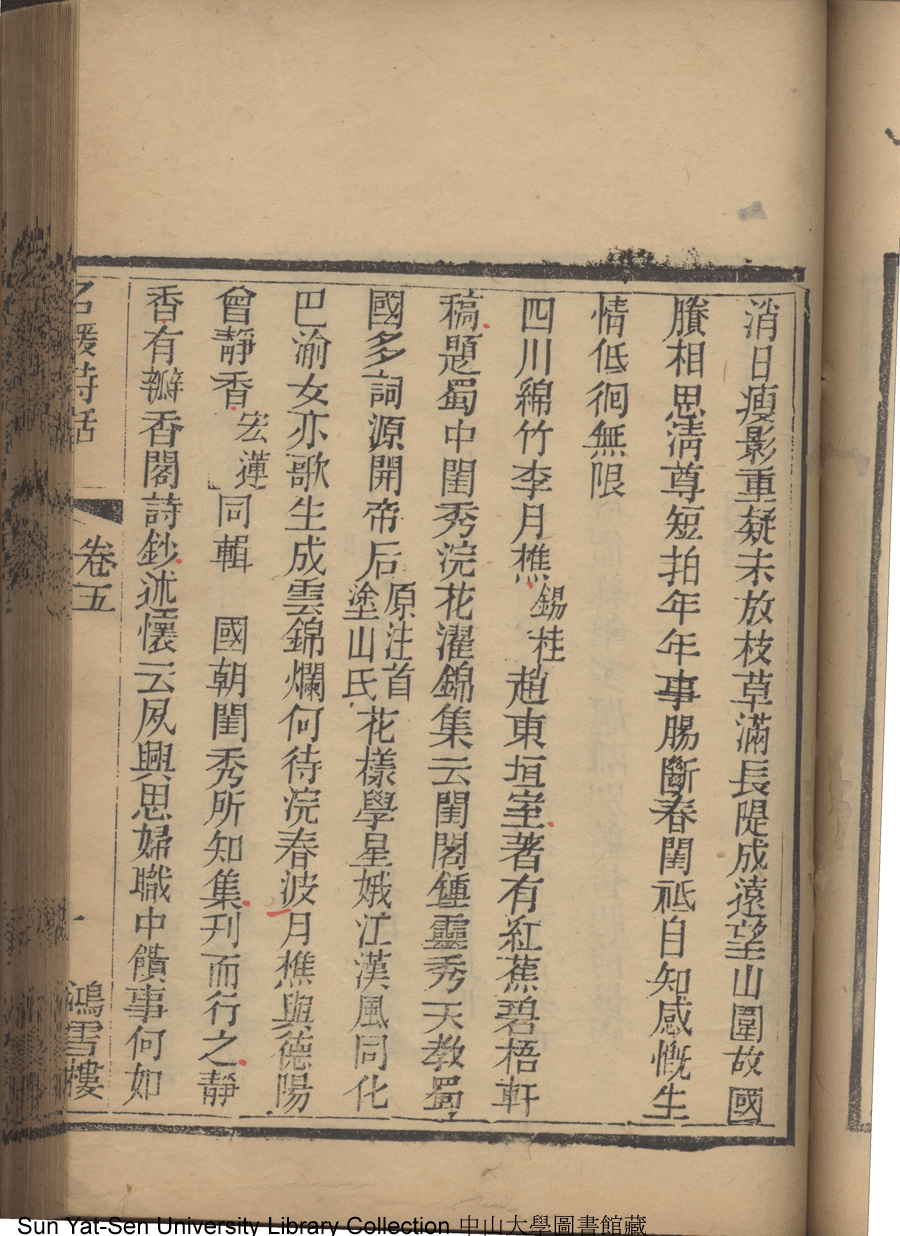 消日瘦影重疑未放枝草滿長隄成遠望山圍故國
賸相思清尊短拍年年事腸斷春閨祗自知感慨生
情低徊無限
四川綿竹李月樵錫桂趙東垣室著有紅蕉碧梧軒
稿題蜀中閨秀浣花濯錦集云閨閣鍾靈秀天敎蜀
國多詞源開帝后原注首塗山氏花樣學星娥江漢風同化
巴渝女亦歌生成雲錦爛何待浣春波月樵與德陽
曾靜香宏蓮同輯 國朝閨秀所知集刋而行之靜
香有瓣香閣詩鈔述懷云夙興思婦職中饋事何如
名媛詩話 卷五 一 鴻雪樓
Sun Yat-Sen University Library Collection 中山大學圖書館藏